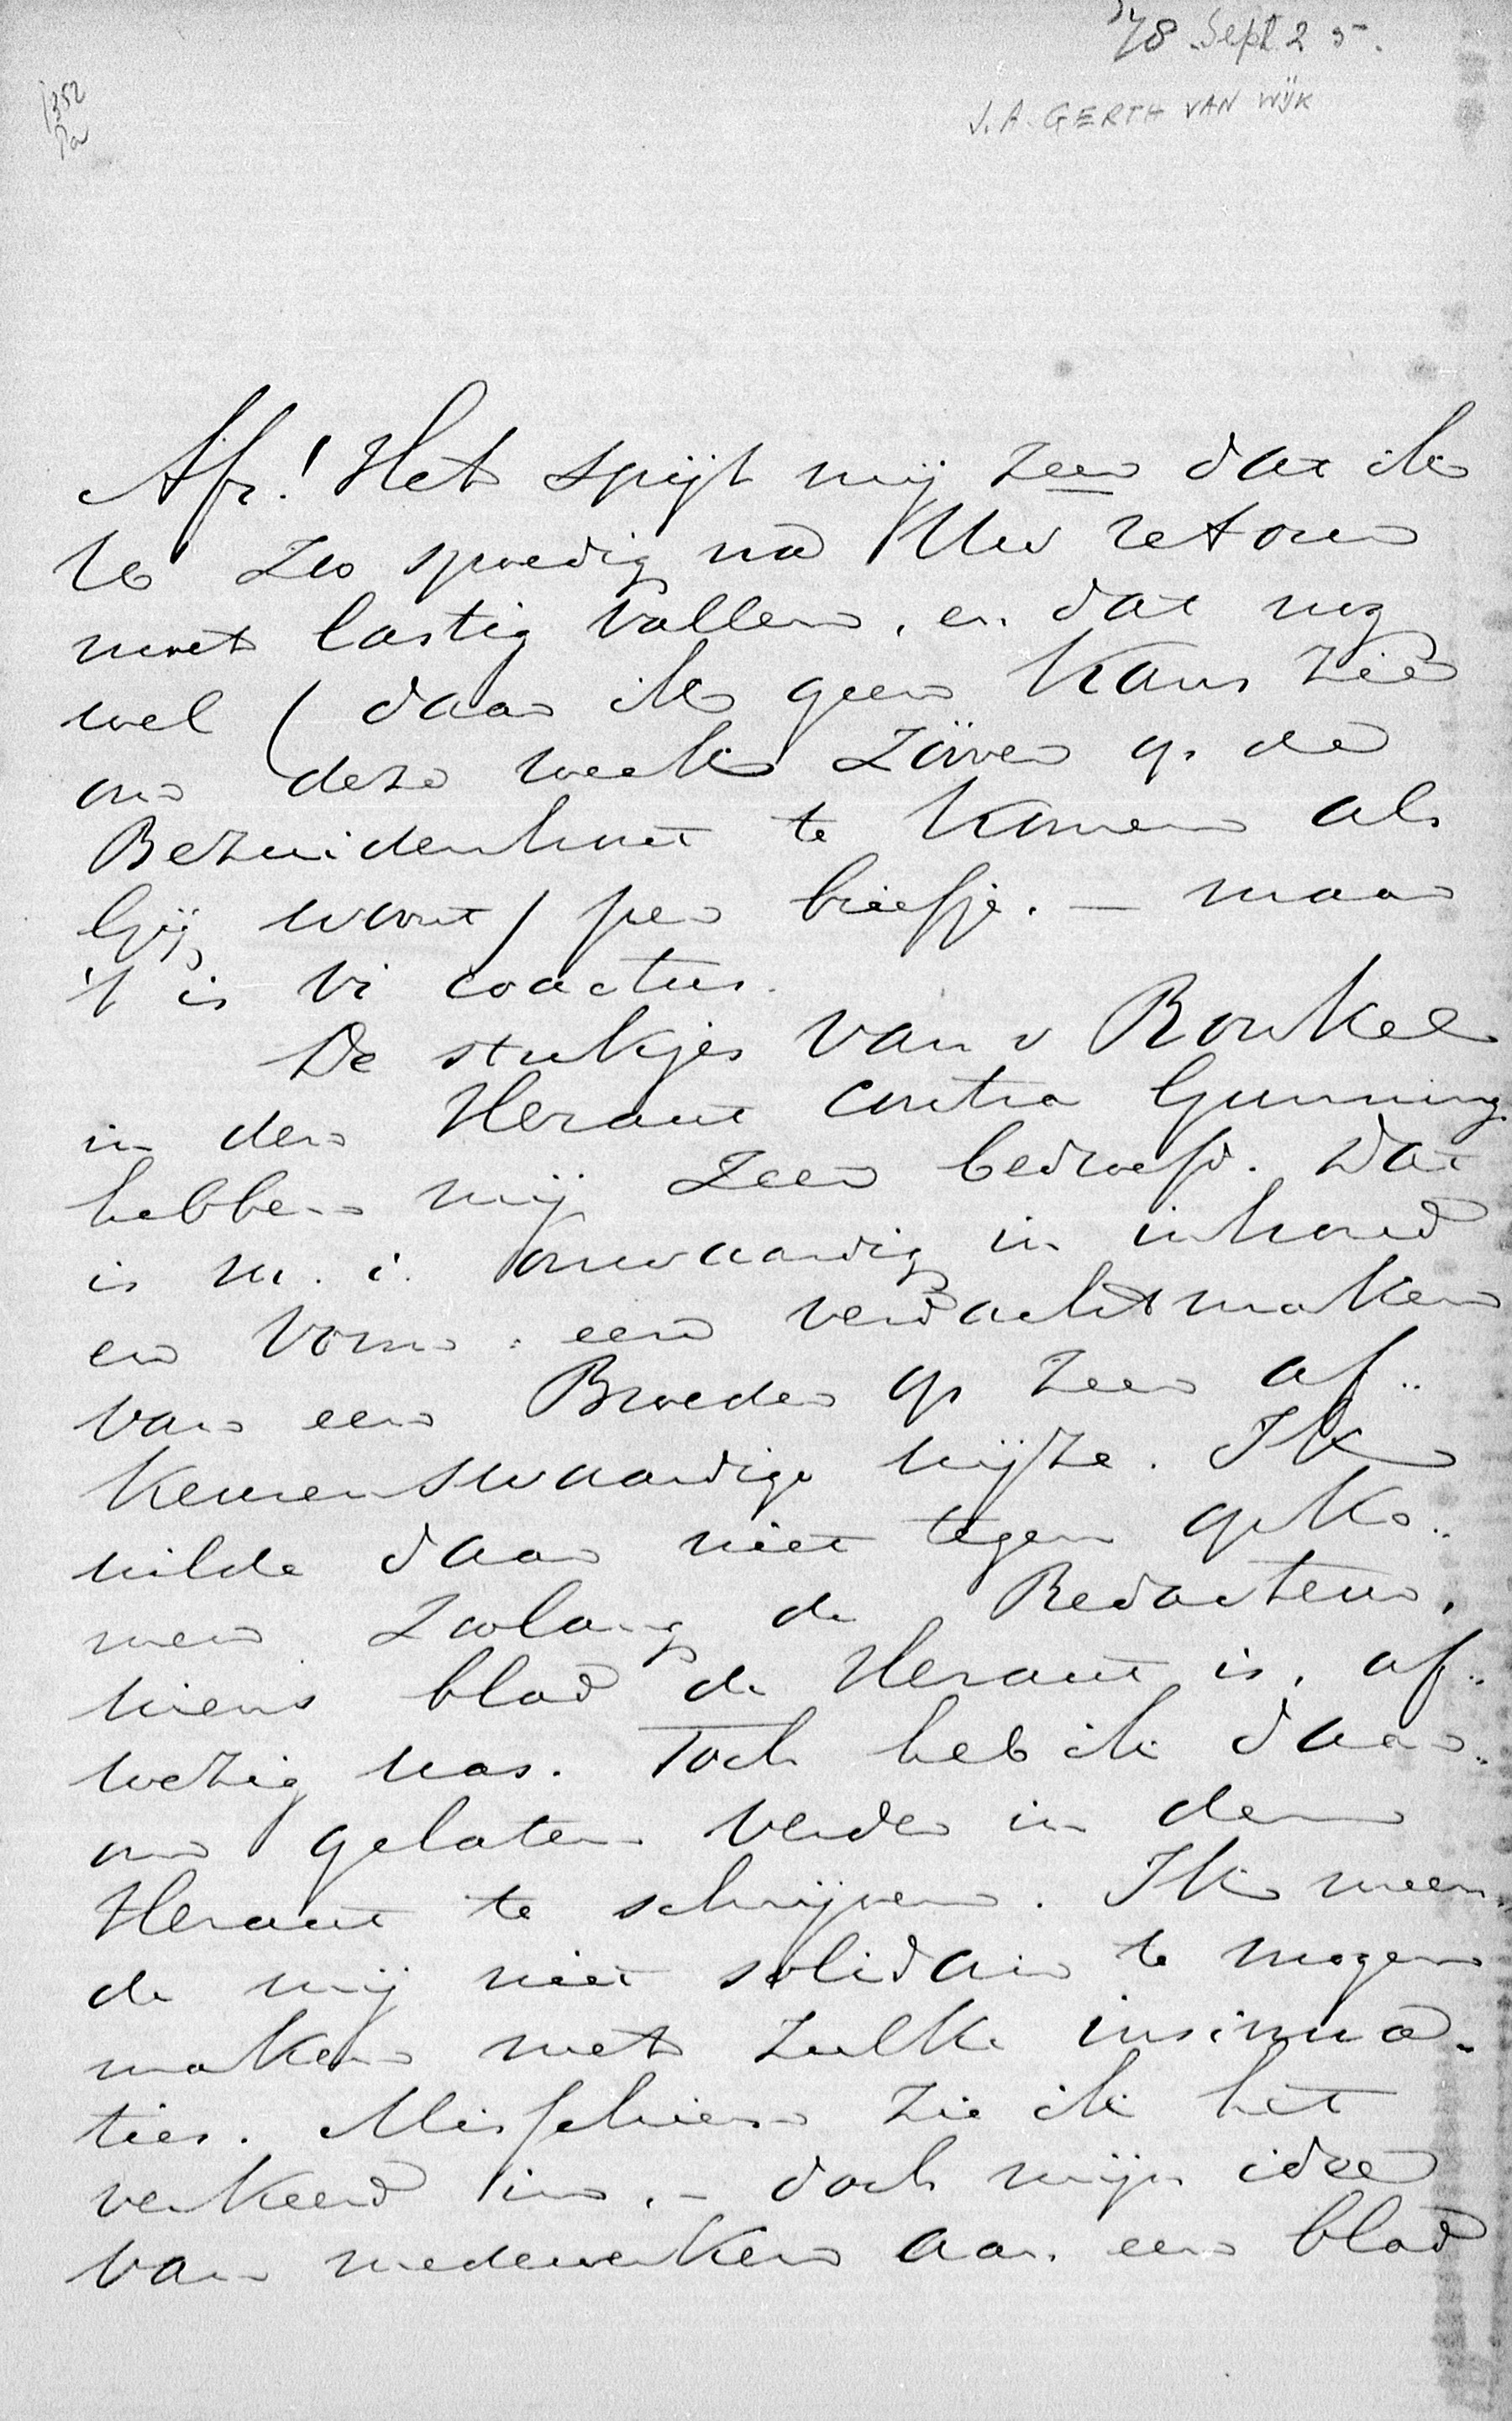 '78 Sept 25.
1352
Pa
J. A. GERTH VAN WIJK
Afr! Het spijt mij zeer dat ik
U zoo spoedig na Uw retour
moet lastig vallen, en dat nog
wel (daar ik geen kans zie
om deze week zóóver op de
Bezuidenhout te komen als
Gij woont) per briefje. — maar
't is vi coactus.
De stukjes van v Ronkel
in den Heraut contra Gunning
hebben mij zeer bedroefd. Dat
is m. i. onwaardig in inhoud
en vorm: een verdachtmaken
van een Broeder op zeer af-
keurenswaardige wijze. Ik
wilde daar niet tegen opko-
men zoolang de Redacteur,
wiens blad de Heraut is, af-
wezig was. Toch heb ik daar-
om gelaten verder in den
Heraut te schrijven. Ik meen-
de mij niet solidair te mogen
maken met zulke insinua-
ties. Misschien zie ik het
verkeerd in. – doch mijn idee
van medewerken aan een blad